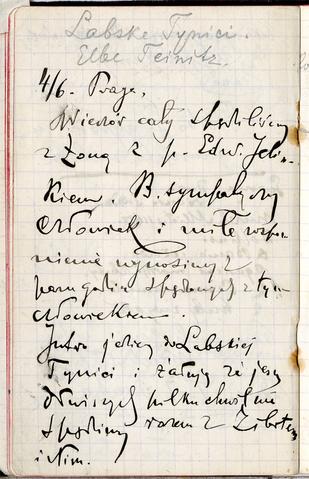 Labske Tynici.
Elbe Teinitz.
4/6. Praga,
Wieczór cały spędziliśmy
z żoną z p. Edw. Jelin-
kiem. B. sympatyczny
człowiek i miłe wspo-
mnienie wynosimy z
paru godzin spędzonych z tym
człowiekiem.
Jutro jedziemy do Labskiej
Tynici i żałuję że jesz
kilku chwil nie
spędzimy razem z
i tim.